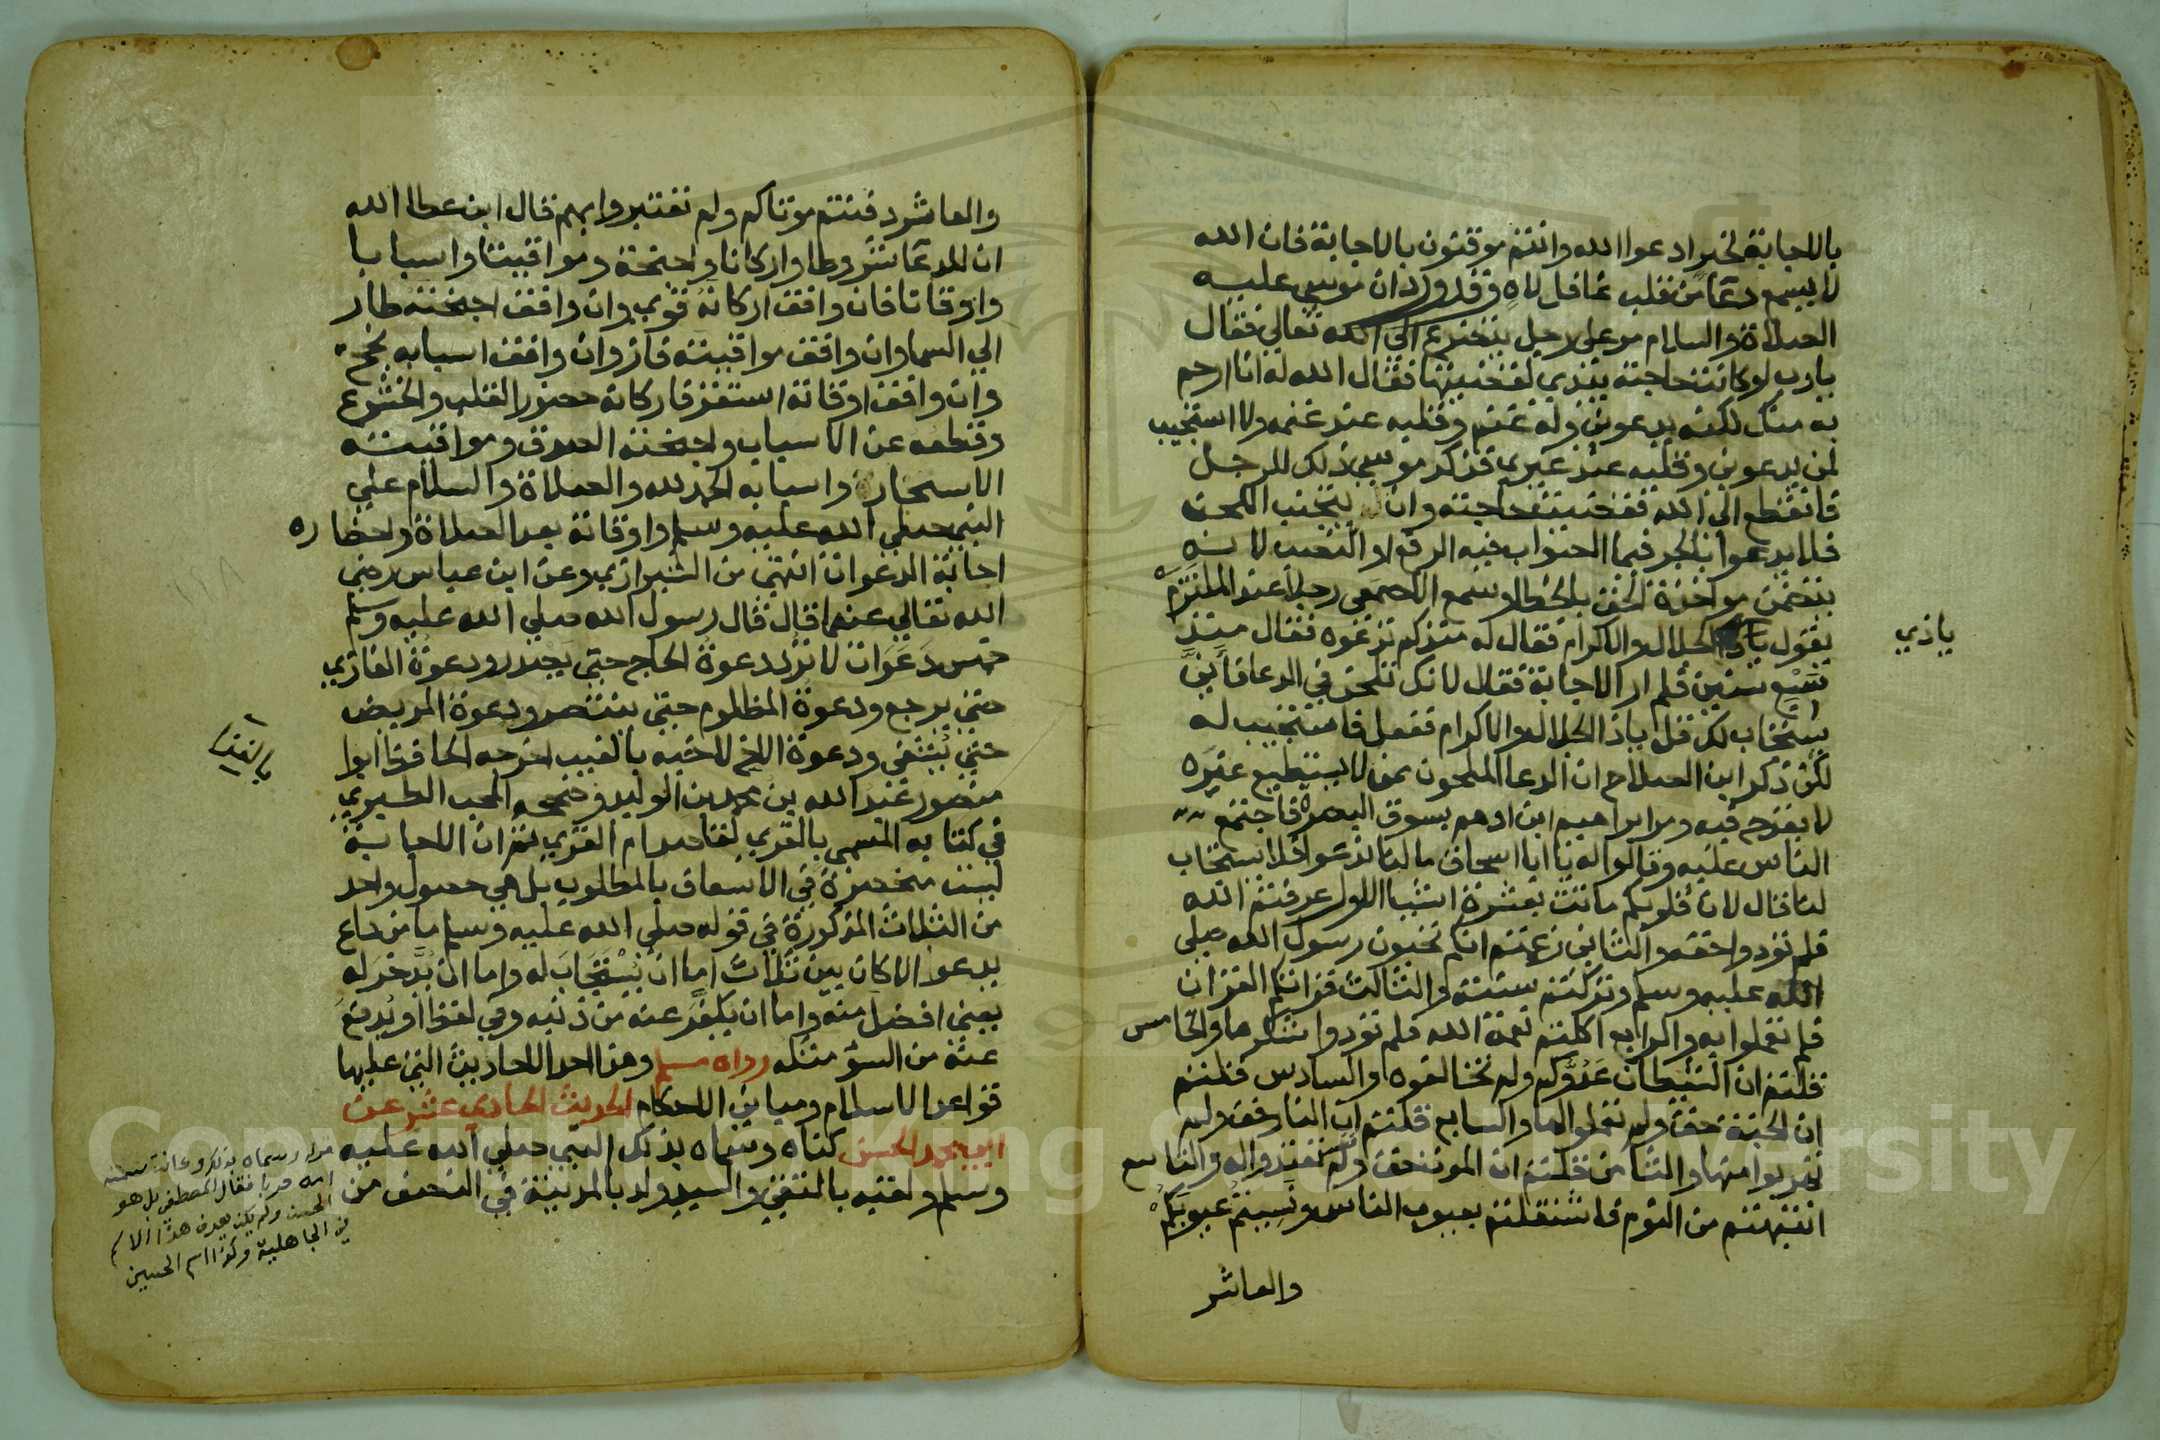 بالاجابة لخبر ادعوا الله وانتم موقنون بالاجابة فان الله
لا يسمع دعا من قلب غافل لاه وقد ورد ان موسى عليه
الصلاة والسلام مر على رجل يتضرع الى الله تعالي فقال
يا رب لو كانت حاجته بيدي لقضيتها فقال الله له انا ارحم
به منك لكنه يدعوني وله غنم وقلبه عند غنمه ولا استجيب
لمن يدعوني وقلبه عند غيري فذكر موسى ذلك للرجل
فانقطع الى الله فقضيت حاجته وان يتجنب اللحن
فلا يدعوا بالجر فيما الصواب فيه الرفع او النصب لانه
يتضمن مواخذة الحق بالخطا وسمع الاصمعى رجلا عند الملتزم
يقول يا ذا الجلال والاكرام فقال له منذ كم تدعوه فقال منذ
يا ذي
سبع سنين فلم ار الاجابة فقال لانك تلحن في الدعا فاني
يستجاب لك قل يا ذا الجلال والاكرام ففعل فاستجيب له
لكن ذكر ابن الصلاح ان الدعا الملحون ممن لا يستطيع غيره
لا يقدح فيه ومر ابراهيم ابن ادهم بسوق البصرة فاجتمع
الناس عليه وقالوا له يا ابا اسحاق ما لنا ندعوا فلا يستجاب
لنا قال لان قلوبكم ماتت بعشرة اشيا الاول عرفتم الله
فلم تودوا حقه والثاني زعمتم انكم تحبون رسول الله صلى
الله عليه وسلم وتركتم سنته والثالث قراتم القران
فلم تعملوا به والرابع اكلتم نعمة الله فلم تودوا شكرها والخامس
قلتم ان الشيطان عدوكم ولم تخالفوه والسادس قلتم
ان الجنة حق ولم تعملوا لها والسابع قلتم ان النار حق ولم
تهربوا منها والثامن قلتم ان الموت حق ولم تستعدوا له والتاسع
انتبهتم من النوم فاشتغلتم بعيوب الناس ونسيتم عيوبكم
والعاشر
والعاشر دفنتم موتاكم ولم تعتبروا بهم قال ابن عطا الله
ان للدعا شروطا واركانا واجنحة ومواقيتا واسبابا
واوقاتا فان وافق اركانه قوي وان وافق اجنحته طار
الي السما وان وافق مواقيته فاز وان وافق اسبابه نجح
وان وافق اوقاته استقر فاركانه حضور القلب والخشوع
وقطعه عن الاسباب واجنحته الصدق ومواقيته
الاسحار واسبابه الحمد لله والصلاة والسلام علي
النبي صلي الله عليه وسلم واوقاته بعد الصلاة واحضاره
اجابة الدعوات انتهى من الشيرازي وعن ابن عباس رضي
الله تعالي عنهما قال قال رسول الله صلي الله عليه وسلم
خمس دعوات لا ترد دعوة الحاج حتى يصدر ودعوة الغازي
حتى يرجع ودعوة المظلوم حتى ينتصر ودعوة المريض
حتى يشفى ودعوة الاخ لاخيه بالغيب اخرجه الحافظ ابوا
منصور عبد الله بن محمد بن الوليد وصححه المحب الطبري
في كتابه المسمى بالقرى لقاصد ام القرى ثم ان الاجابة
ليست منحصرة في الاسعاف بالمطلوب بل هي حصول واحد
من الثلاث المذكورة في قوله صلى الله عليه وسلم ما من داع
يدعوا الا كان بين ثلاث اما ان يستجاب له واما ان يدخر له
يعني افضل منه واما ان يكفر عنه من ذنبه وفي لفظ او يدفع
عنه من السو مثله رواه مسلم وهذا احد الاحاديث التي عليها
قواعد الاسلام ومباني الاحكام الحديث الحادي عشر عن
ابي محمد الحسن كناه وسماه بذلك النبي صلي الله عليه
وسلم ولقبه بالتقي والسيد ولد بالمدينة في النصف من
امه حربا فقال المصطفى بل هو
الحسن ولم يكن يعرف هذا الاسم
في الجاهلية وكذا اسم الحسين